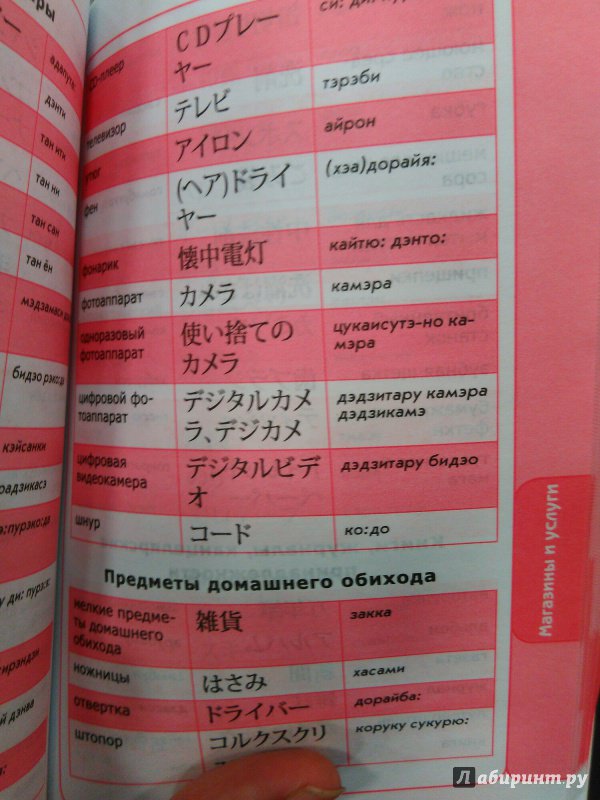 еры
адапута:
дэнти
тан ити
тан ни
тан сан
тан ён
мэдзамаси
бидэо рэко:да
кэйсанки
радзикасэ
CD-плеер
CDプレー
ヤー
телевизор
テレビ
тэрэби
утюг
アイロン
айрон
фен
(ヘア)ドライ
ヤー
(хэа)дорайя:
фонарик
懐中電灯
кайтю: дэнто:
фотоаппарат
カメラ
камэра
одноразовый
фотоаппарат
使い捨ての
カメラ
цукаисутэ-но ка-
мэра
цифровой фо-
тоаппарат
デジタルカメ
ラ、デジカメ
дэдзитару камэра
дэдзикамэ
цифровая
видеокамера
デジタルビデ
オ
дэдзитару бидэо
шнур
コード
ко:до
Предметы домашнего обихода
мелкие предме-
ты домашнего
обихода
雑貨
закка
ножницы
はさみ
хасами
отвертка
ドライバー
дорайба:
штопор
コルクスクリ
коруку сукурю:
Магазины и услуги
Лабиринт.ру